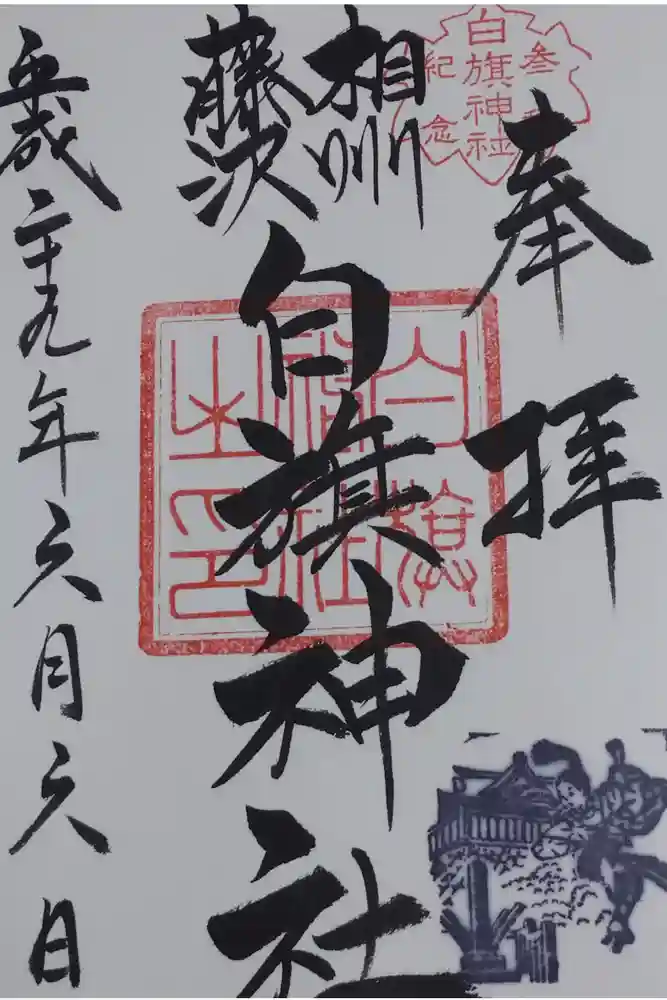 奉拝
白旗神社
参拝
紀念
相州
藤沢
白旗神社
白旗
神社
之印
平成二十九年六月六日